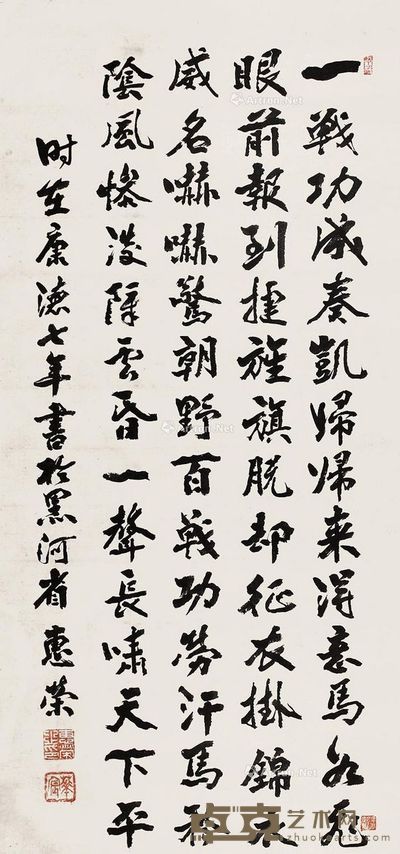 一戰功成奏凱歸歸來得意馬如飛
眼前報到捷旌旗脱却征衣掛錦衣
威名嚇嚇驚朝野百戰功勞汗馬
陰風慘淡陣雲昏一聲長嘯天下平
时在康德七年書於黑河省惠榮
Artron.Net
卓克艺术网
zhuokearts.com